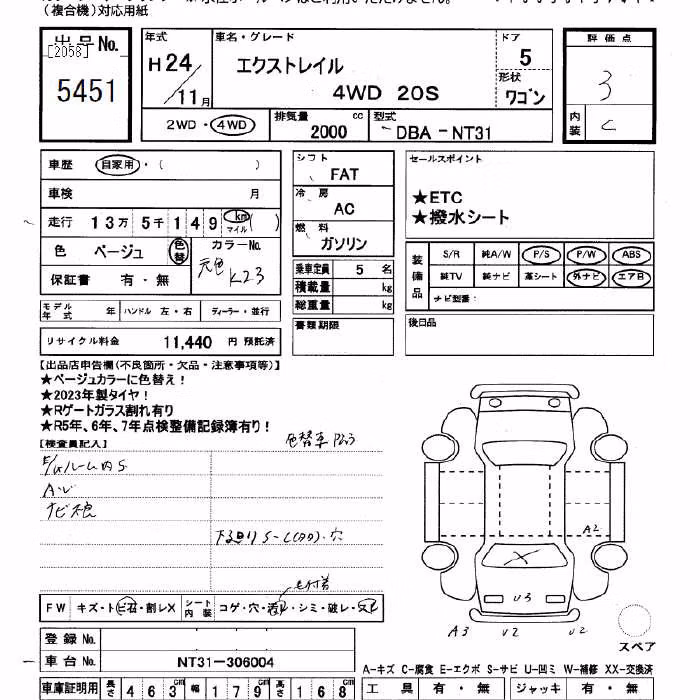 (複合機)対応用紙
出品 No.
[2058]
5451
年式
H24/11月
車名・グレード
エクストレイル
4WD 20S
ドア
5
形状
ワゴン
評価点
3
内装
C
2WD・4WD
排気量
2000 cc
型式
DBA-NT31
車歴 自家用・( )
車検 月
走行 13万 5千149 km マイル ( )
色 ベージュ 色替 カラーNo.
元色 K23
保証書 有・無
シフト
FAT
冷房
AC
燃料
ガソリン
乗車定員 5 名
積載量 kg
総重量 kg
書類期限
セールスポイント
★ETC
★撥水シート
装備品
S/R 純A/W P/S P/W ABS
純TV 純ナビ 革シート 外ナビ エアB
ナビ型番:
後日品
モデル年式 年 ハンドル 左・右 ディーラー・並行
リサイクル料金 11,440 円 預託済
【出品店申告欄(不良箇所・欠品・注意事項等)】
★ベージュカラーに色替え!
★2023年製タイヤ!
★Rゲートガラス割れ有り
★R5年、6年、7年点検整備記録簿有り!
【検査員記入】
色替車
ルーム内S
下回りS-C
穴
A2
U3
A3 U2 U2
スペア
FW キズ・トビ石・割レX シート内装 コゲ・穴・汚レ・シミ・破レ・スレ
登録 No.
車台 No. NT31-306004
A-キズ C-腐食 E-エクボ S-サビ U-凹ミ W-補修 XX-交換済
車庫証明用 長さ 463cm 幅 179cm 高さ 168cm
工具 有・無 ジャッキ 有・無